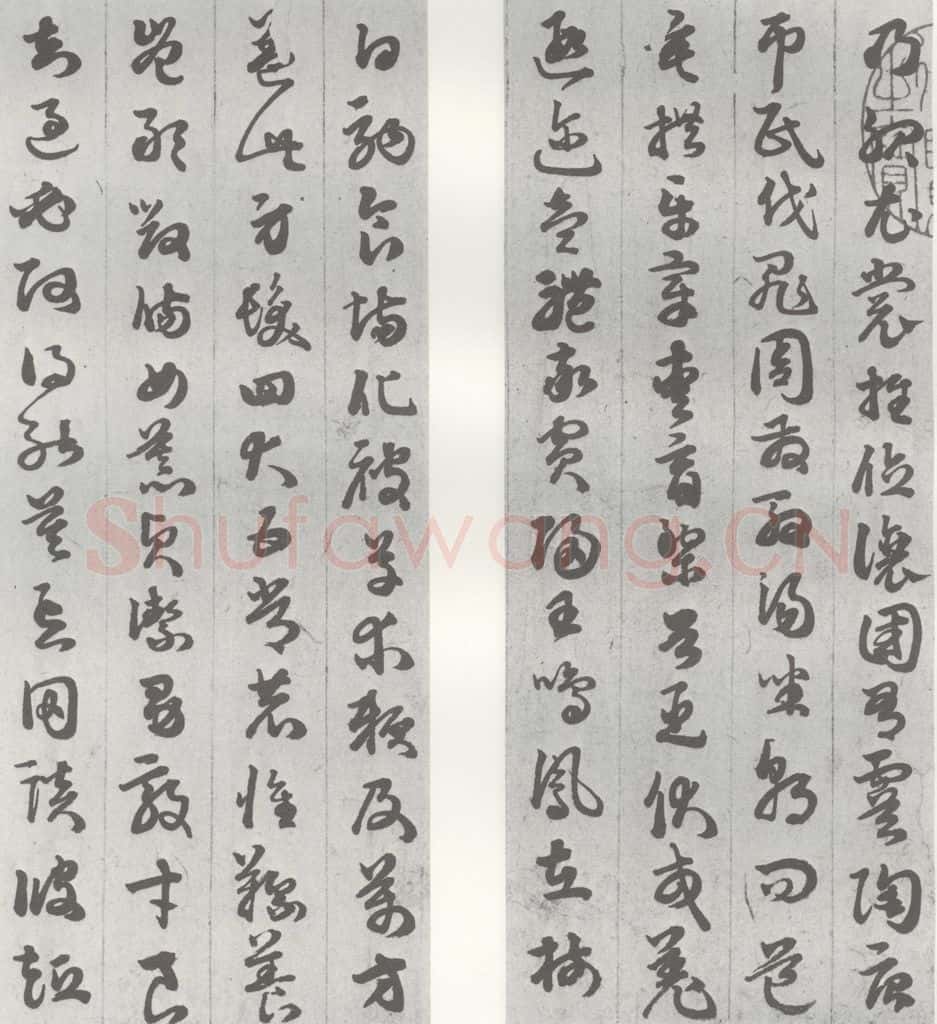 乃服衣裳推位讓國有虞陶唐
弔民伐罪周發殷湯坐朝問道
垂拱平章愛育黎首臣伏戎羌
遐邇壹體率賓歸王鳴鳳在樹
白駒食場化被草木賴及萬方
蓋此身髮四大五常恭惟鞠養
豈敢毀傷女慕貞潔男效才良
知過必改得能莫忘罔談彼短
Shufawang.CN